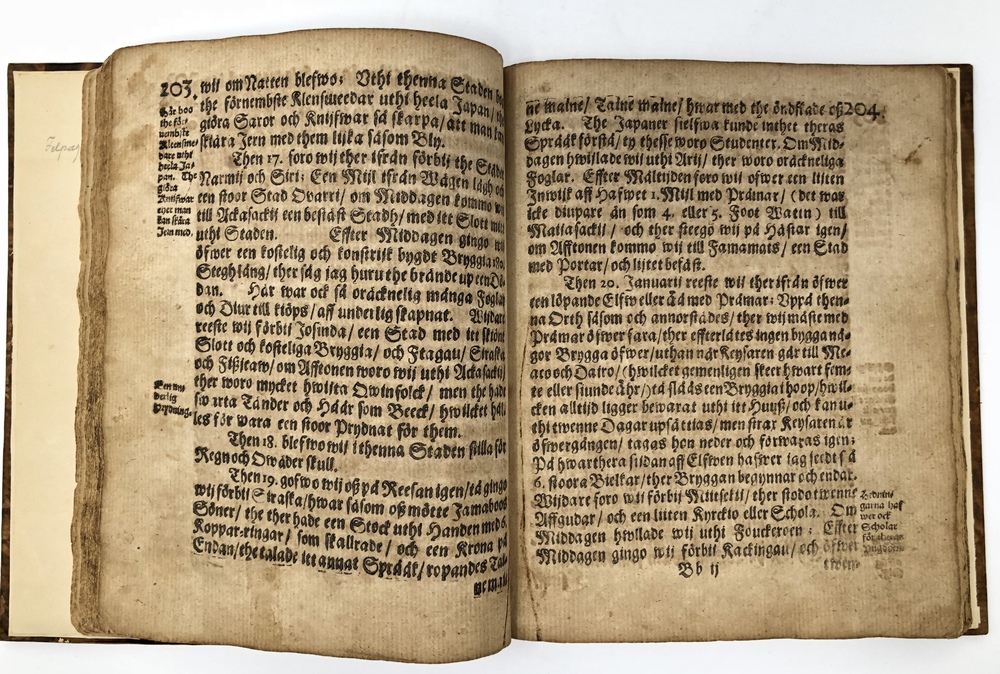 Felpag
203.
wij om Natten blefwo; Vthi thenna Staden boo
the förnembste Klensmeedar uthi heela Japan / the
giöra Saror och Knijfwar så skarpa / att man kan
skiära Jern med them lijka såsom Bly.
Then 17. foro wij ther ifrån förbij the Städer
Narmij och Siri; Een Mijl ifrån Wägen lågh och
een stoor Stad Ovarri / om Middagen kommo wij
till Ackasackij een befäst Stadh / med itt Slott mitt
uthi Staden. Effter Middagen gingo wij
öfwer een kostelig och konstrijk bygdt Bryggia 180.
Steegh lång / ther såg jag huru the brände up een Dö-
dan. Här war ock så oräcknelig många Foglar
och Diur till kiöps / aff underlig skapnat. Wijdare
reeste wij förbij Josinda / een Stad med itt skiönt
Slott och kosteliga Bryggia / och Ftagau / Siraska
och Fißicaw / om Afftonen woro wij uthi Ackasackij /
ther woro mycket hwijta Qwinfolck / men the hade
swarta Tänder och Håår som Beeck / hwilcket hål-
les för wara een stoor Prydnat för them.
Then 18. blefwo wij i thenna Staden stilla för
Regn och Owäder skull.
Then 19. gofwo wij oß på Reesan igen / tå gingo
wij förbij Siraska / hwar såsom oß mötte Jamaboos
Söner / the ther hade een Stock uthi Handen med 6.
Koppar-ringar / som skallrade / och een Krona på
Endan / the talade itt annat Språåk / ropandes Tai-
ne mai-
Här boo
the för-
nembste
Kleensme-
dare uthi
heela Ja-
pan. The
giöra
Knifwar
eyer man
kan skära
Jern med.
Een un-
derlig
Prydning.
204.
ne maine / Taine maine / hwar med the önskade oß
Lycka. The Japaner sielfwa kunde inthet theras
Språåk förstå / ty thesse woro Studenter. Om Mid-
dagen hwijlade wij uthi Arij / ther woro oräckneliga
Foglar. Effter Måltijden foro wij öfwer een lijten
Inwijk aff Hafwet 1. Mijl med Prämar / (det war
icke diupare än som 4. eller 5. Foot Watn) till
Matiasackij / och ther steego wij på Hästar igen /
om Afftonen kommo wij till Famamats / een Stad
med Portar / och lijtet befäst.
Then 20. Januarii reeste wij ther ifrån öfwer
een löpande Elfw eller åå med Prämar: Vppå then-
na Orth såsom och annorstädes / ther wij måste med
Prämar öfwer fara / ther effterlåtes ingen bygga nå-
gor Brygga öfwer / uthan när Keysaren går till Me-
aco och Dairo / (hwilcket gemenligen skeer hwart fem-
te eller siunde åhr /) tå slåås een Bryggia i hoop / hwil-
cken alltijd ligger bewarat uthi itt Huuß / och kan u-
thi twenne Dagar upsättias / men strax Keysaren är
öfwergången / tagas hon neder och förwaras igen;
På hwarthera sijdan aff Elfwen hafwer jag seedt så
6. stoora Bielkar / ther Bryggan begynnar och endar.
Wijdare foro wij förbij Mittsckij / ther stodo twenne
Affgudar / och een liiten Kyrckio eller Schola. Om
Middagen hwijlade wij uthi Fouckeroen; Effter
Middagen gingo wij förbij Kackingau / och öfwer
Bb ij
Hednin-
garna haf-
wer ock
Scholar
för theras
Ungdom.